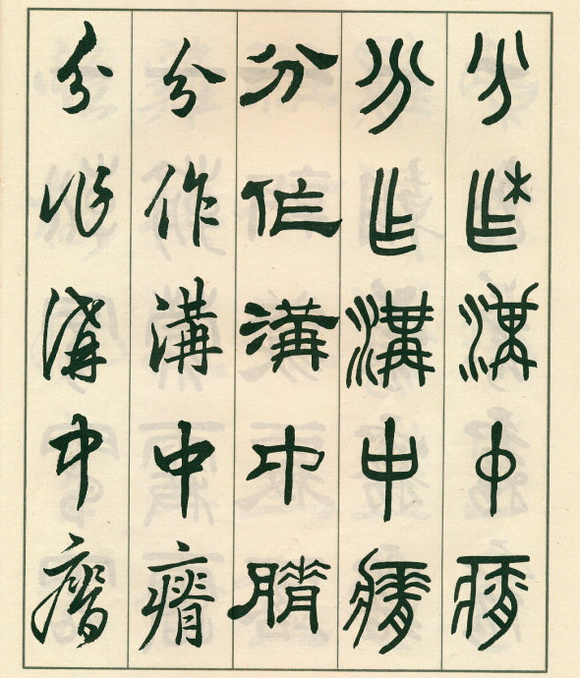 分作溝中瘠
分作溝中瘠
分作溝中膌
分作溝中瘠
分作溝中瘠